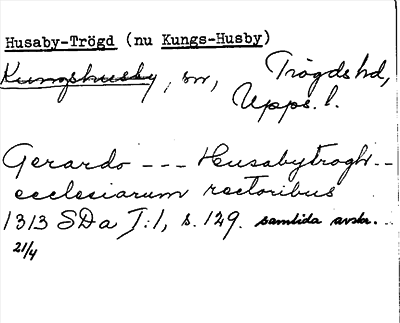 Husaby-Trögd (nu Kungs-Husby)
Kungshusby, sn, Trögds hd,
Upps. l.
Gerardo --- Husabytroghr --
ecclesiarum rectoribus
1313 SDa I:1, s. 129. samtida avskr. --
21/4